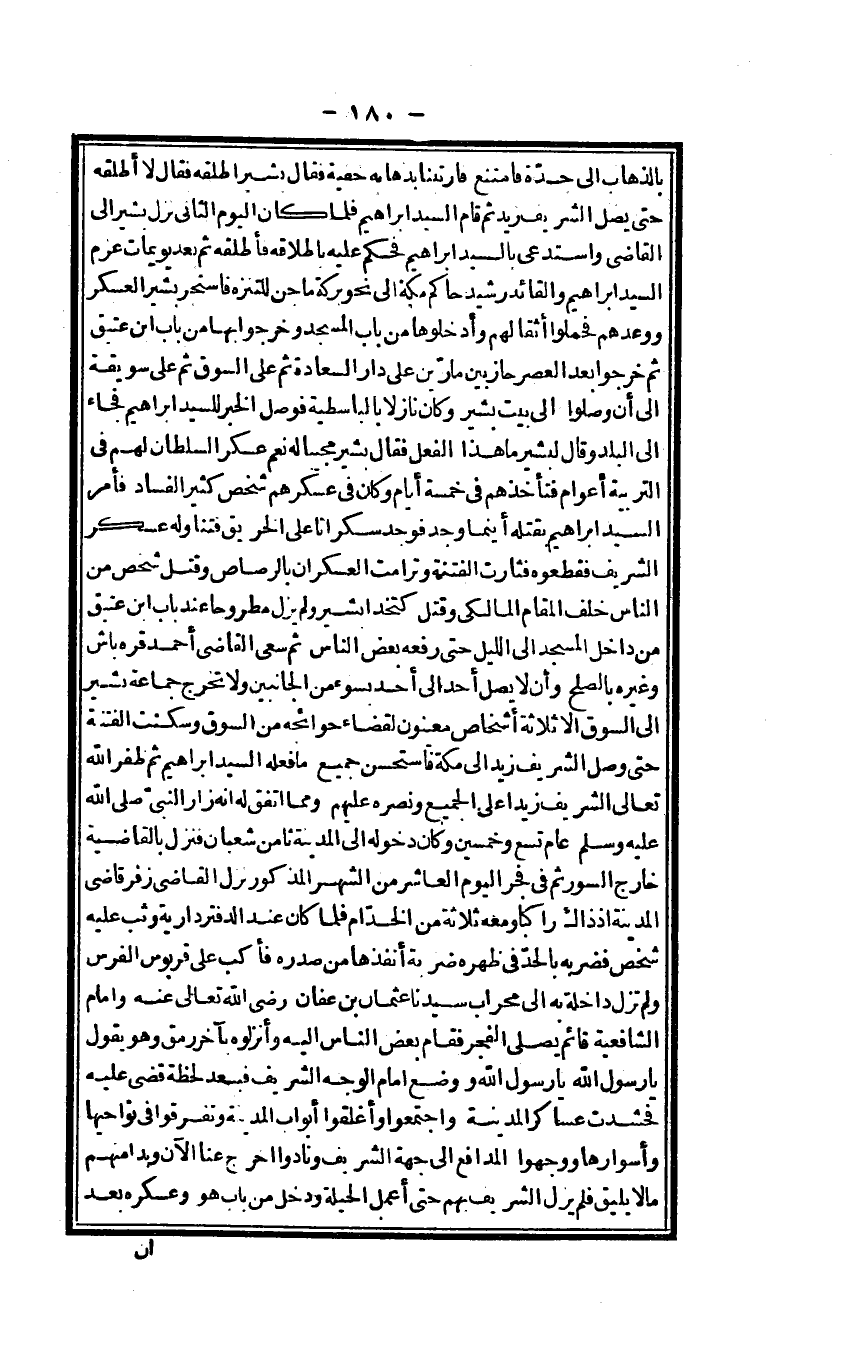 - ١٨٠ -
بالذهاب الى جدّة فامتنع فارتفنا بذهابه خفية فقال بشير اطلقه فقال لا أطلقه
حتى يصل الشريف زيد ثم قام السيد ابراهيم فلما كان اليوم الثانى نزل بشير الى
القاضى واستدعى بالسيد ابراهيم فحكم عليه باطلاقه فأطلقه ثم بعد يويمات عزم
السيد ابراهيم والقائد رشيد حاكم مكة الى نحو بركة ماجن للتنزه فاستجر بشير العسكر
ووعدهم فحملوا أثقالهم وأدخلوها من باب المسجد وخرجوا بها من باب ابن عتيق
ثم خرجوا بعد العصر حازبين مارّين على دار السعادة ثم على السوق ثم على سويقة
الى أن وصلوا الى بيت بشير وكان نازلا بالباسطية فوصل الخبر للسيد ابراهيم فجاء
الى البلد وقال لبشير ما هذا الفعل فقال بشير مجيبا له نعم عكر السلطان لهم فى
التربية أعوام فتأخذهم فى خمسة أيام وكان فى عسكرهم شخص كثير الفساد فأمر
السيد ابراهيم بقتله أينما وجد فوجد سكرانا على الحريق فتناوله عسكر
الشريف فقطعوه فثارت الفتنة وترامت العسكران بالرصاص وقتل شخص من
الناس خلف المقام المالكى وقتل كتخدا بشير ولم يزل مطروحا عند باب ابن عتيق
من داخل المسجد الى الليل حتى رفعه بعض الناس ثم سعى القاضى أحمد قره باش
وغيره بالصلح وأن لا يصل أحد الى أحد بسوء من الجانبين ولا تخرج جماعة بشير
الى السوق الا ثلاثة أشخاص معنون لقضاء حوائجه من السوق وسكنت الفتنة
حتى وصل الشريف زيد الى مكة فاستحسن جميع مافعله السيد ابراهيم ثم ظفر الله
تعالى الشريف زيدا على الجميع ونصره عليهم ومما اتفق له انه زار النبىّ صلى الله
عليه وسلم عام تسع وخمسين وكان دخوله الى المدينة ثامن شعبان فنزل بالقاضية
خارج السور ثم فى فجر اليوم العاشر من الشهر المذكور نزل القاضى زفر قاضى
المدينة اذ ذاك راكبا ومعه ثلاثة من الخدّام فلما كان عند الدفتردارية وثب عليه
شخص فضربه بالحدّ فى ظهره ضربة أنفذها من صدره فأكب على قربوس الفرس
ولم تزل داخلة به الى محراب سيدنا عثمان بن عفان رضى الله تعالى عنه وامام
الشافعية قائم يصلى الفجر فقام بعض الناس اليه وأنزلوه بآخر رمق وهو يقول
يارسول الله يارسول الله ووضع امام الوجه الشريف فبعد لحظة قضى عليه
فحشدت عساكر المدينة واجتمعوا وأغلقوا أبواب المدينة وتفرقوا فى نواحيها
وأسوارها ووجهوا المدافع الى جهة الشريف ونادوا اخرج عنا الآن وبدا منهم
مالا يليق فلم يزل الشريف بهم حتى أعمل الحيلة ودخل من باب هو وعسكره بعد
ان